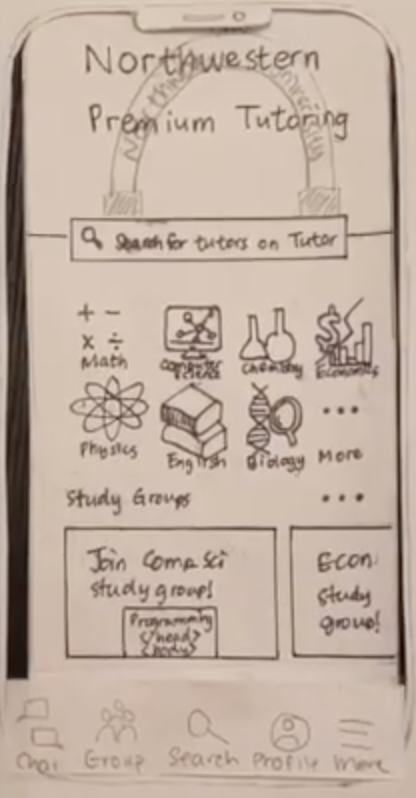 Northwestern
Northwestern University
Premium Tutoring
Search for tutors on Tutor
+ −
× ÷
Math
Computer Science
Chemistry
Economics
Physics
English
Biology
More
Study Groups
Join Comp Sci
study group!
Programming
</head>
<body>
Econ
study
group!
Chat
Group
Search
Profile
More